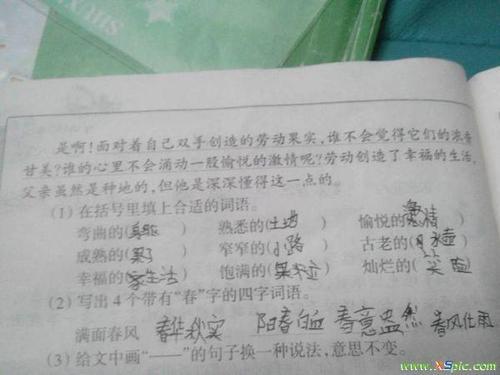 是啊!面对着自己双手创造的劳动果实,谁不会觉得它们的浓香
甘美?谁的心里不会涌动一股愉悦的激情呢?劳动创造了幸福的生活,
父亲虽然是种地的,但他是深深懂得这一点的。
(1)在括号里填上合适的词语。
弯曲的(身躯) 熟悉的(土边) 愉悦的(激情)
成熟的(果子) 窄窄的(小路) 古老的(水壶)
幸福的(生活) 饱满的(果粒) 灿烂的(笑脸)
(2)写出4个带有“春”字的四字词语。
满面春风 春华秋实 阳春白血 春意盎然 春风化雨
(3)给文中画“——”的句子换一种说法,意思不变。
www.XSpic.com